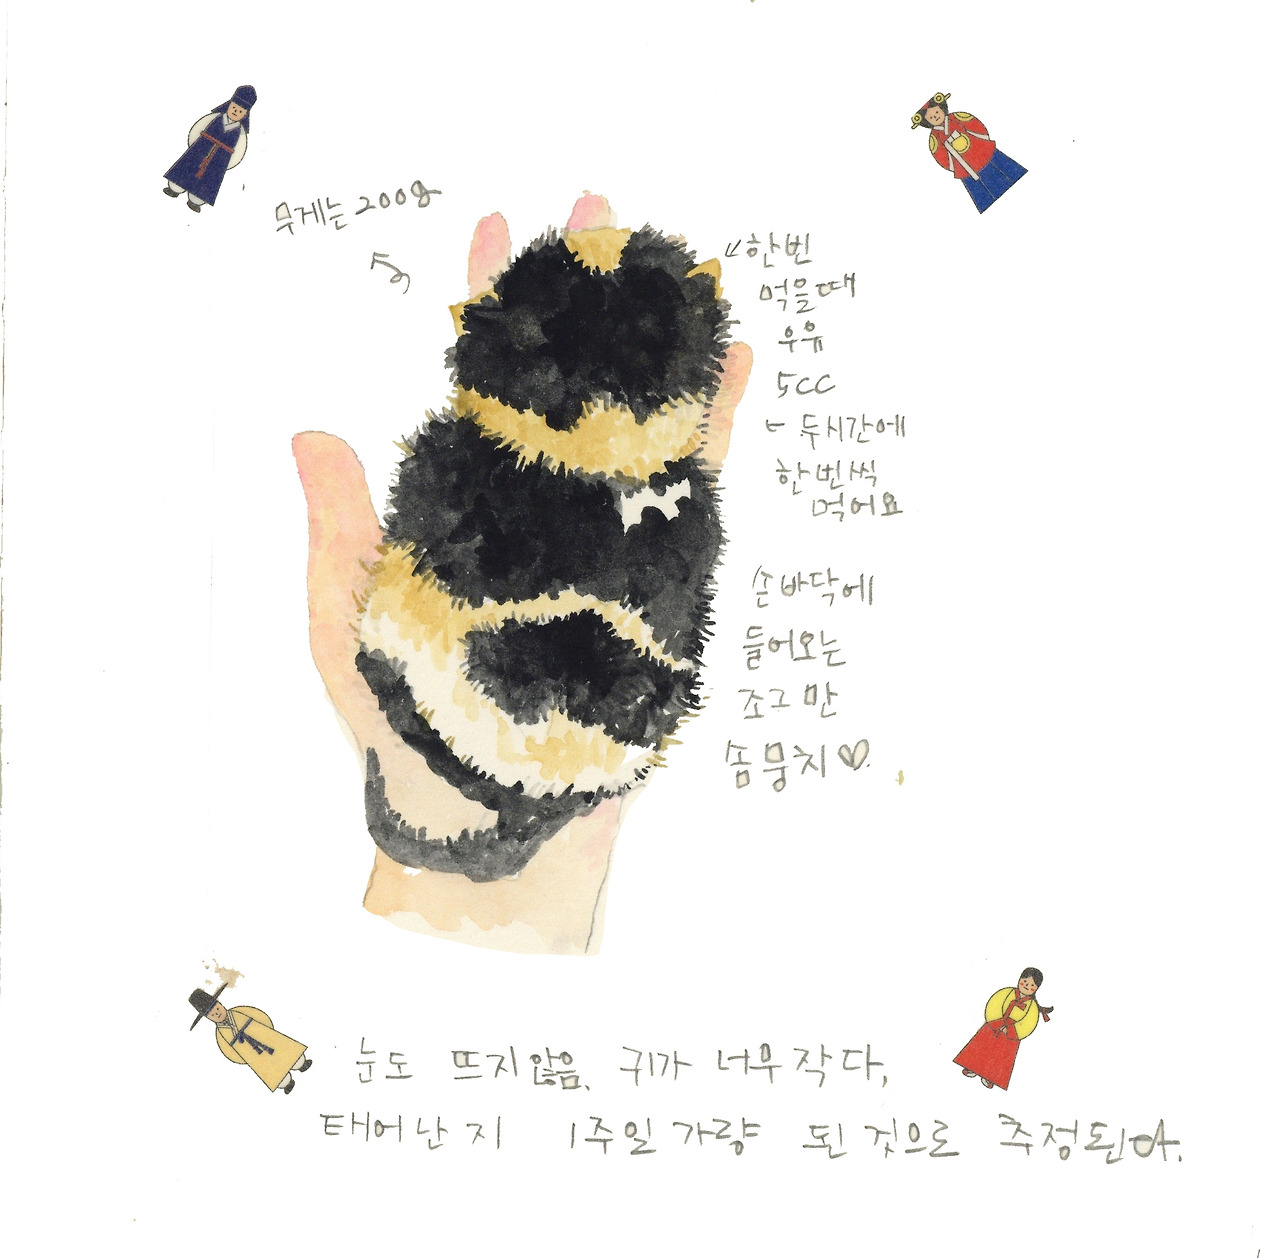 무게는 200g
한번
먹을때
우유
5cc
두시간에
한번씩
먹어요
손바닥에
들어오는
조그만
솜뭉치♡.
눈도 뜨지않음. 귀가 너무 작다,
태어난지 1주일가량 된 것으로 추정된다.